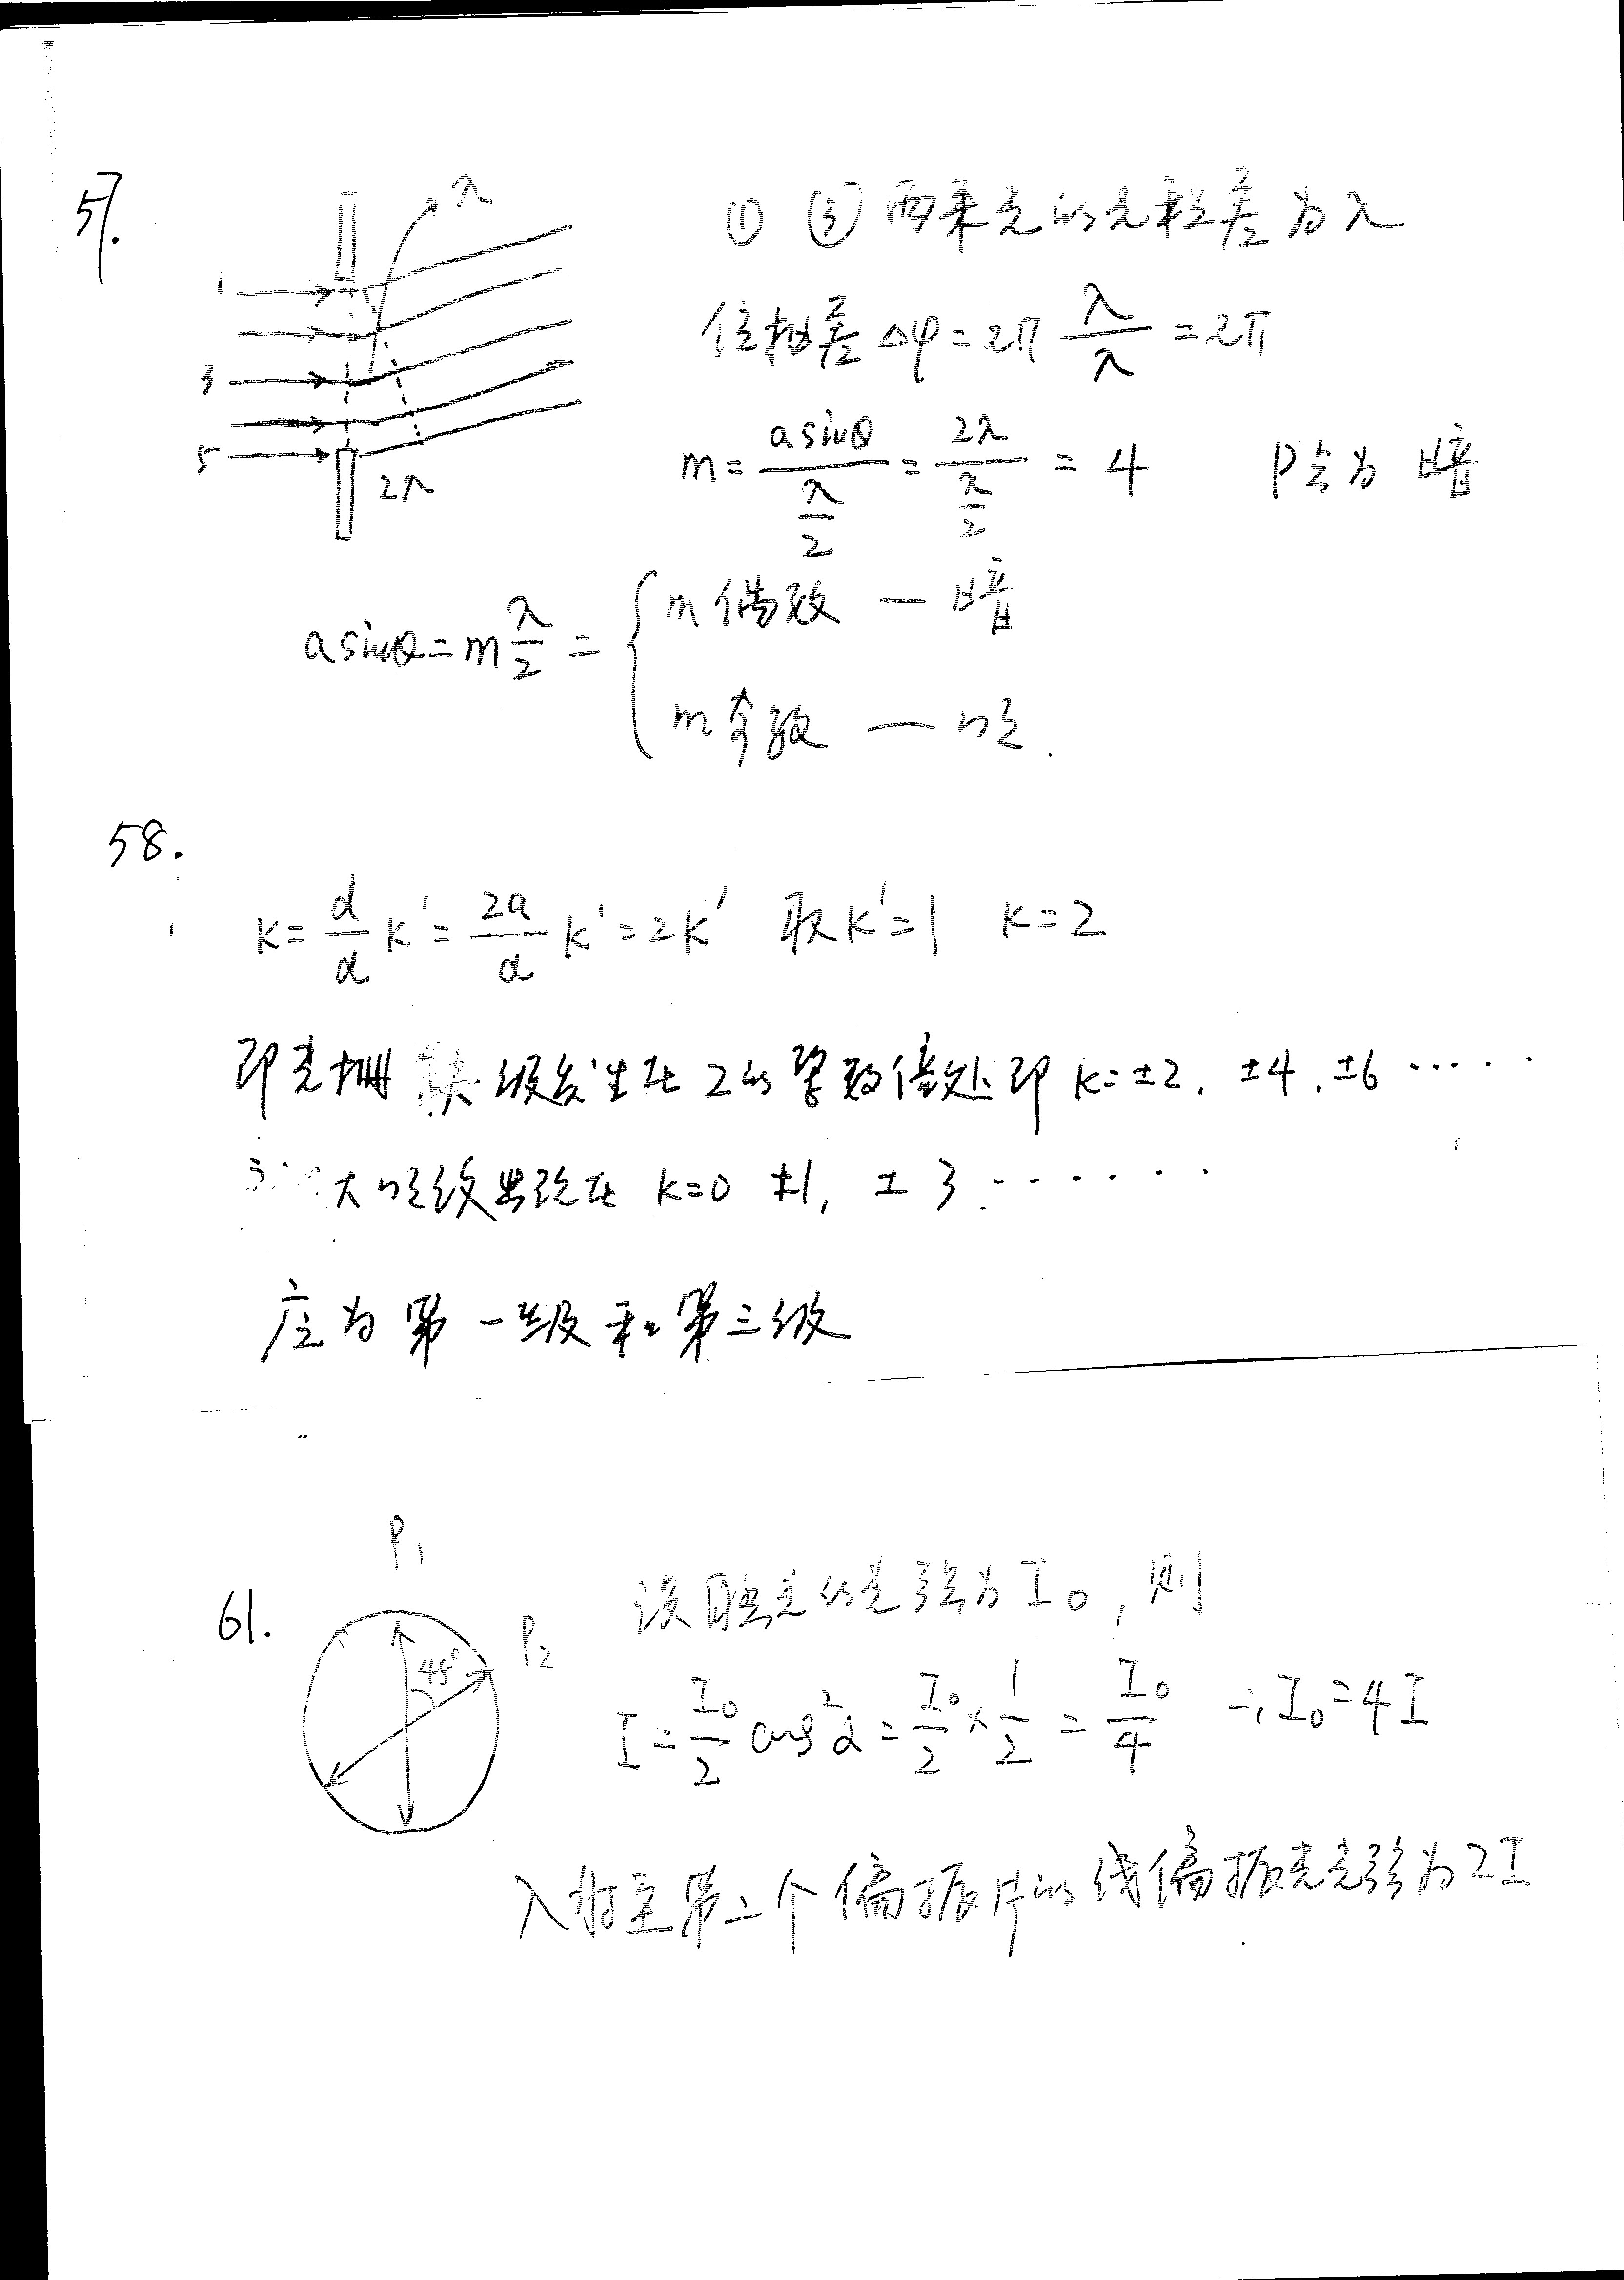 57.
λ
1
3
5
2λ
① ③ 两束光的光程差为λ
位相差 Δφ = 2π λ/λ = 2π
m = a sinθ / (λ/2) = 2λ / (λ/2) = 4 P点为暗
a sinθ = m λ/2 = { m偶数 — 暗
m奇数 — 明.
58.
K = d/a K' = 2a/a K' = 2K' 取K'=1 K=2
即光栅缺级发生在2的整数倍处即 K=±2, ±4, ±6 ……
主大明纹出现在 K=0 ±1, ±3 ……
应为第一级和第三级
61.
P₁
P₂
45°
设自然光的光强为I₀, 则
I = I₀/2 cos²α = I₀/2 × 1/2 = I₀/4 ∴ I₀ = 4I
入射至第二个偏振片的线偏振光光强为2I